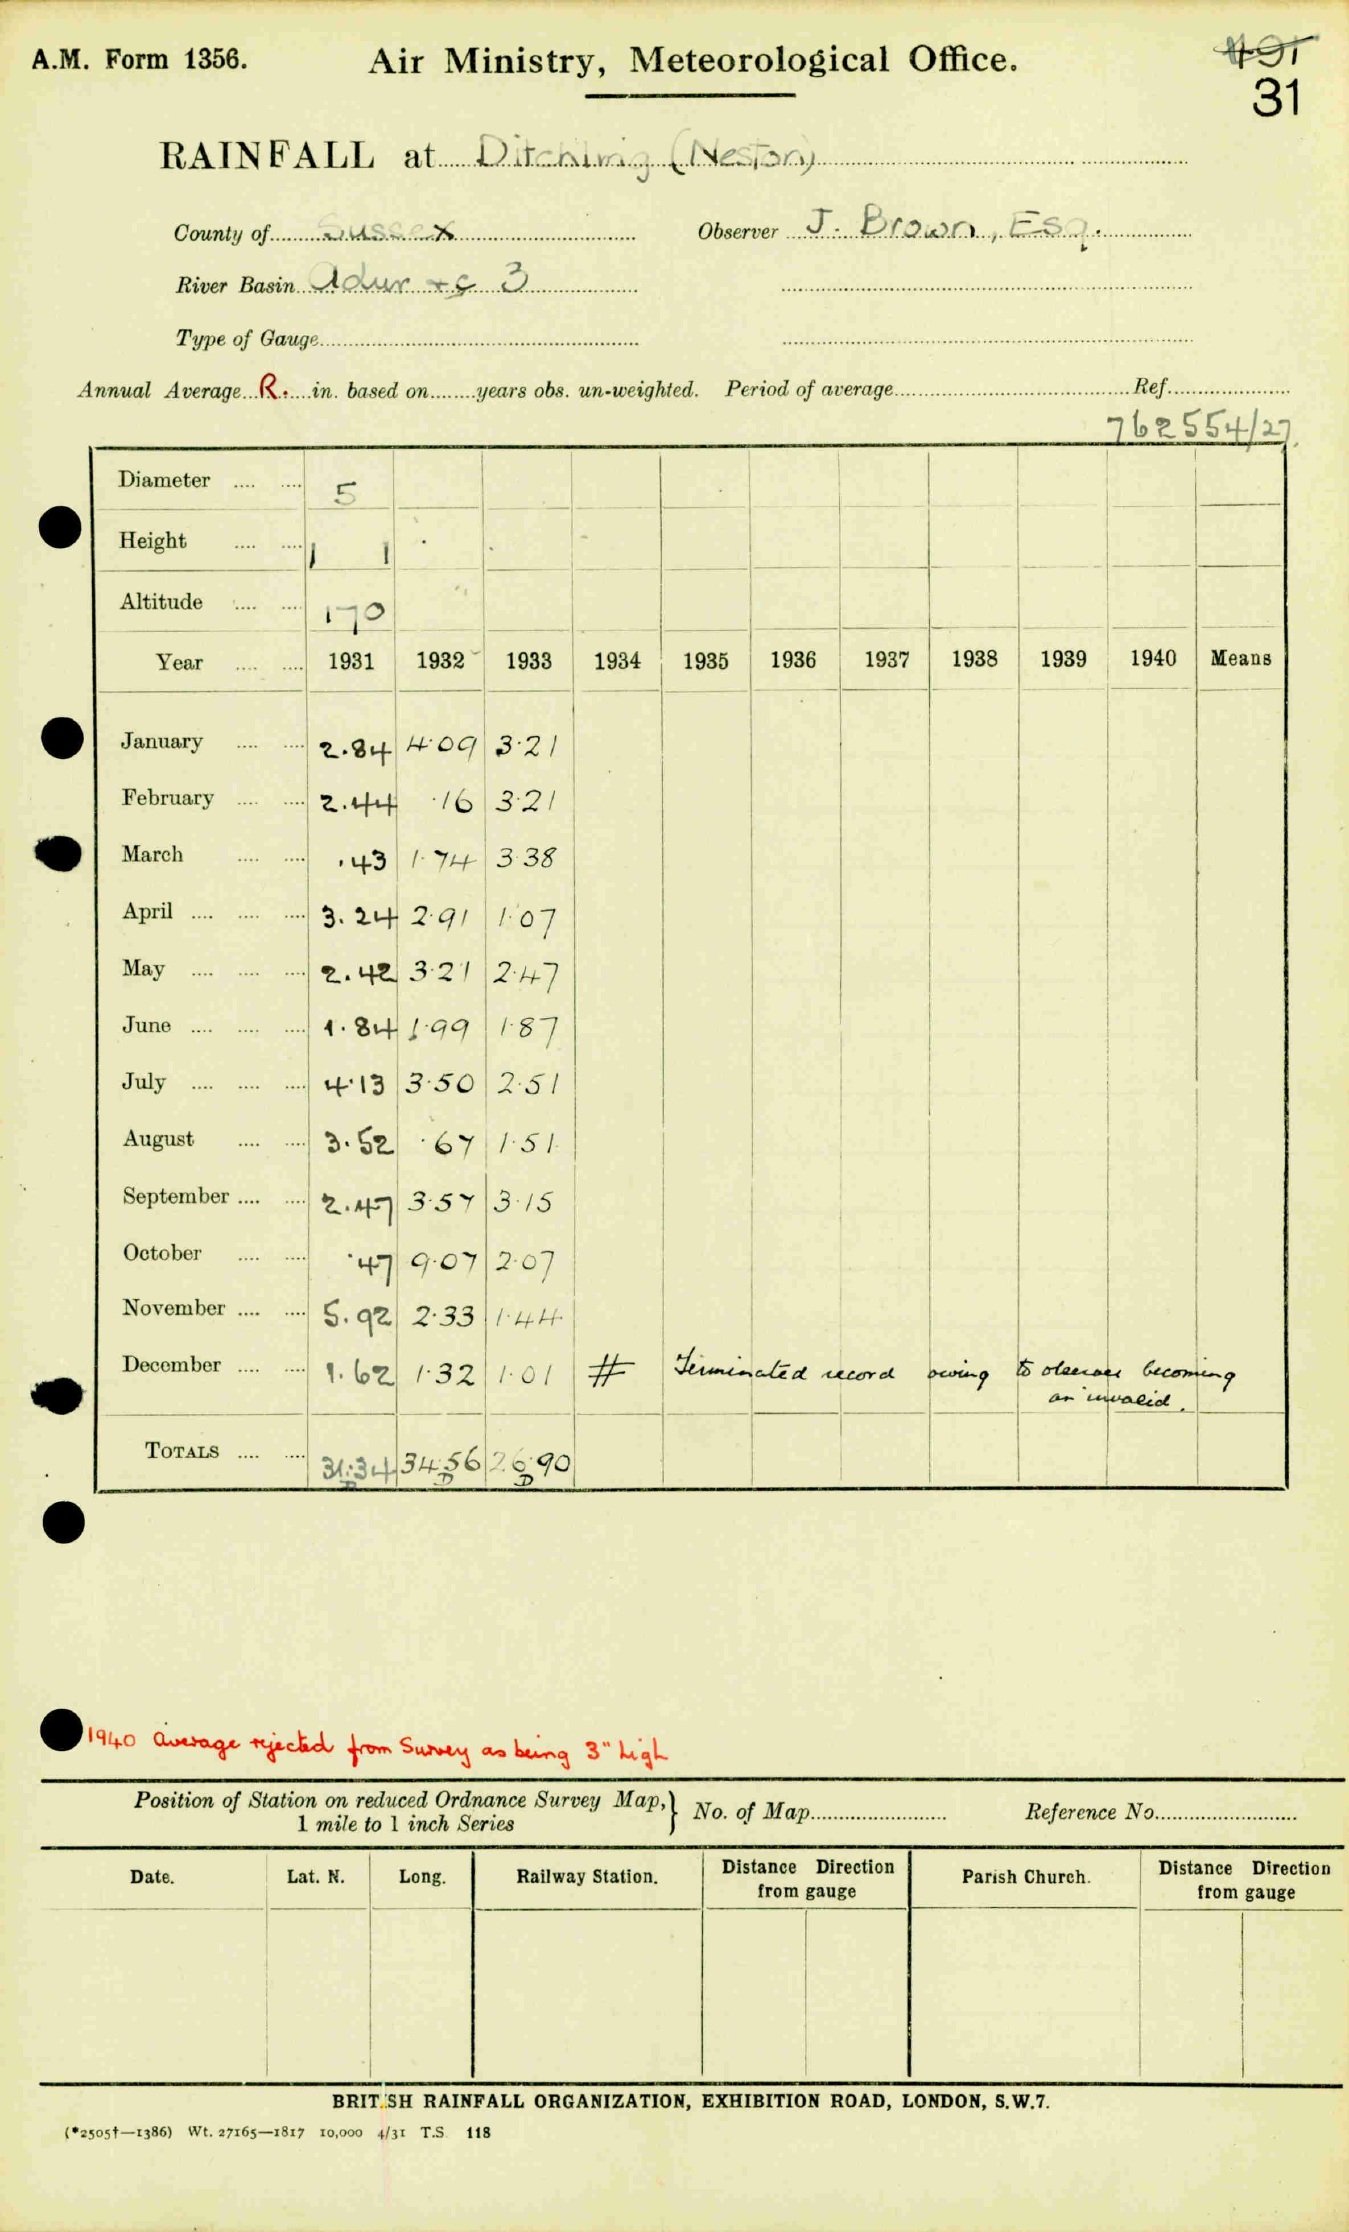 A.M. Form 1356. Air Ministry, Meteorological Office. 491
31
RAINFALL at Ditchling (Neston)
County of Sussex Observer J. Brown, Esq.
River Basin Adur &c 3
Type of Gauge
Annual Average R. in. based on years obs. un-weighted. Period of average Ref.
762554/27.
Diameter 5
Height 1 1
Altitude 170
Year 1931 1932 1933 1934 1935 1936 1937 1938 1939 1940 Means
January 2.84 4.09 3.21
February 2.44 .16 3.21
March .43 1.74 3.38
April 3.24 2.91 1.07
May 2.42 3.21 2.47
June 1.84 1.99 1.87
July 4.13 3.50 2.51
August 3.52 .67 1.51
September 2.47 3.57 3.15
October .47 9.07 2.07
November 5.92 2.33 1.44
December 1.62 1.32 1.01 # Terminated record owing to observer becoming
an invalid.
TOTALS 31.34 34.56 26.90
D D D
1940 average rejected from Survey as being 3" high
Position of Station on reduced Ordnance Survey Map, } No. of Map Reference No.
1 mile to 1 inch Series
Date. Lat. N. Long. Railway Station. Distance Direction Parish Church. Distance Direction
from gauge from gauge
BRITISH RAINFALL ORGANIZATION, EXHIBITION ROAD, LONDON, S.W.7.
(*2505†—1386) Wt. 27165—1817 10,000 4/31 T.S. 118